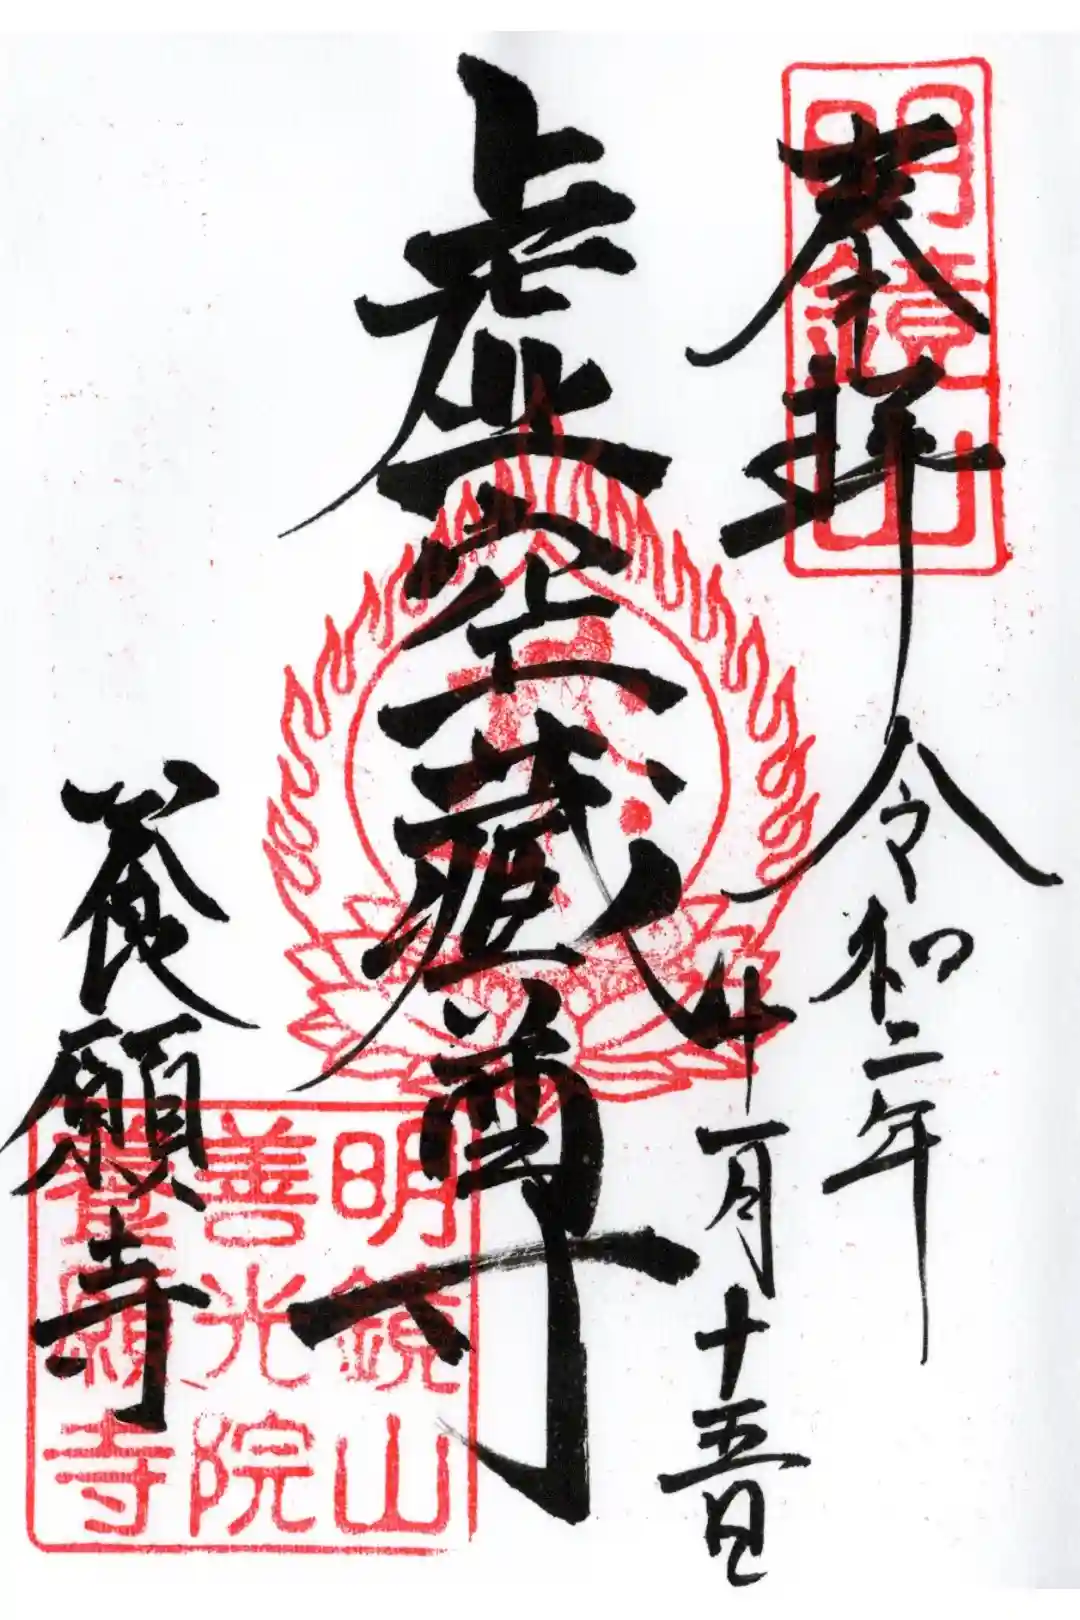 明鏡山
奉拝
令和二年
十一月十五日
虚空蔵尊
養願寺
明鏡山
善光院
養願寺